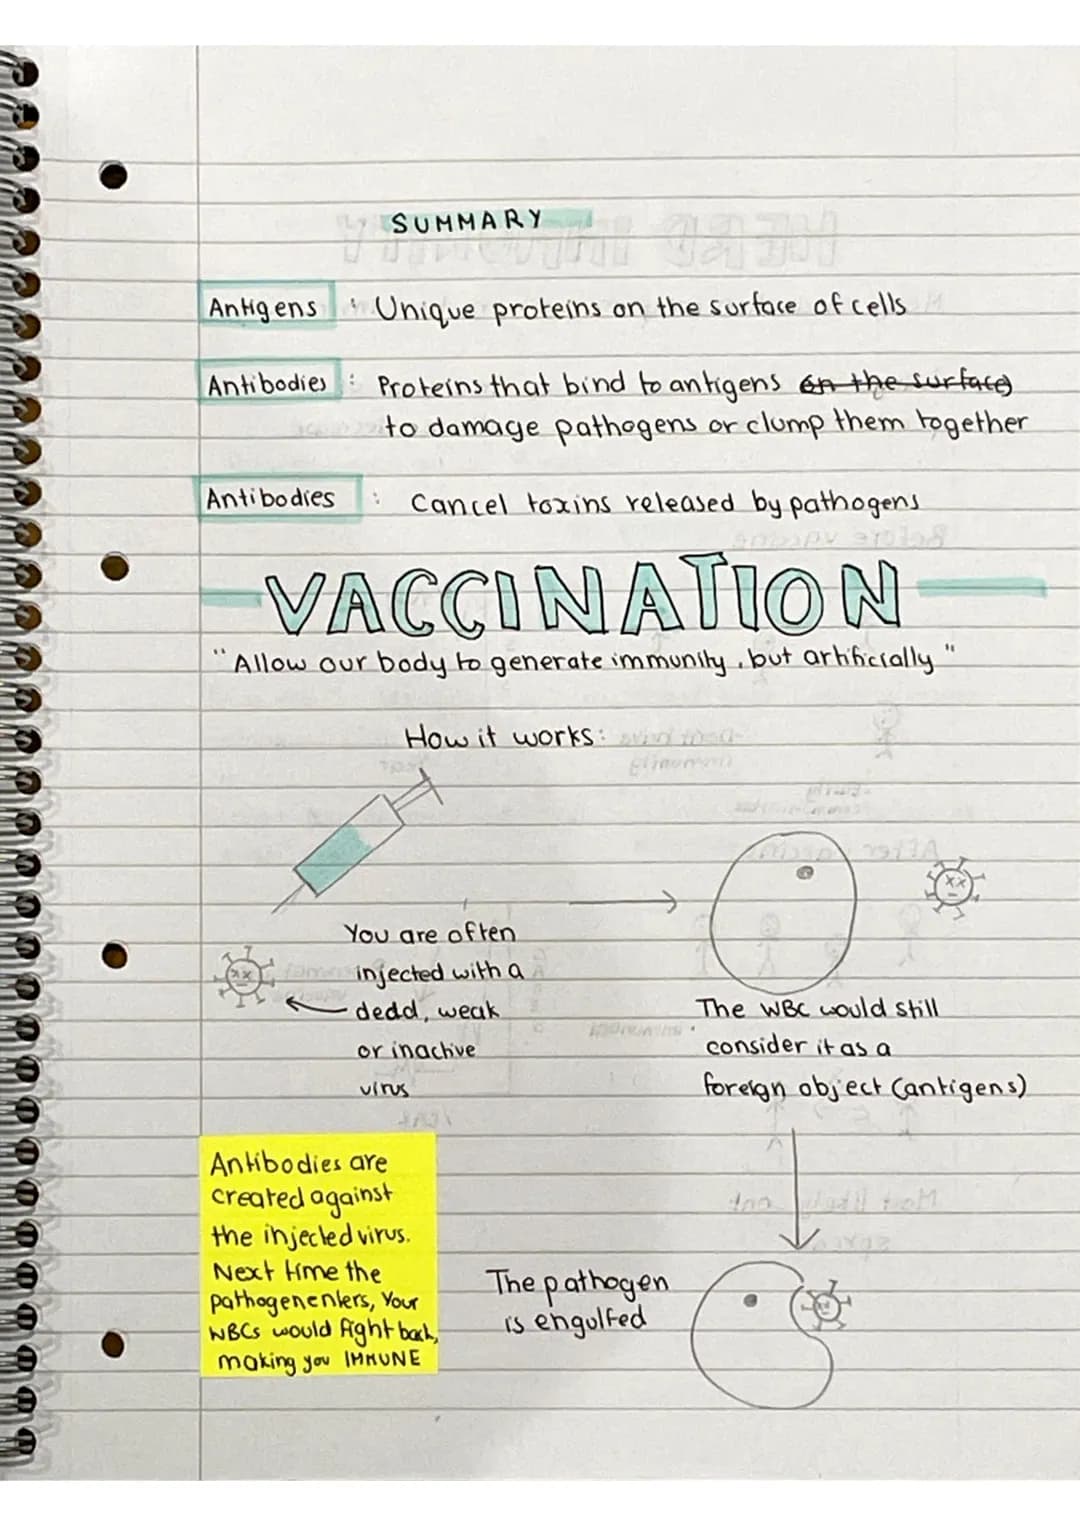 SUMMARY
Antigens : Unique proteins on the surface of cells
Antibodies : Proteins that bind to antigens on the surface
to damage pathogens or clump them together
Antibodies : Cancel toxins released by pathogens
VACCINATION
"Allow our body to generate immunity, but artificially"
How it works:
You are often
injected with a
dedd, weak
or inactive
virus
The WBC would still
consider it as a
foreign object (antigens)
Antibodies are
created against
the injected virus.
Next time the
pathogen enters, Your
WBCs would fight back,
making you IMMUNE
The pathogen
is engulfed